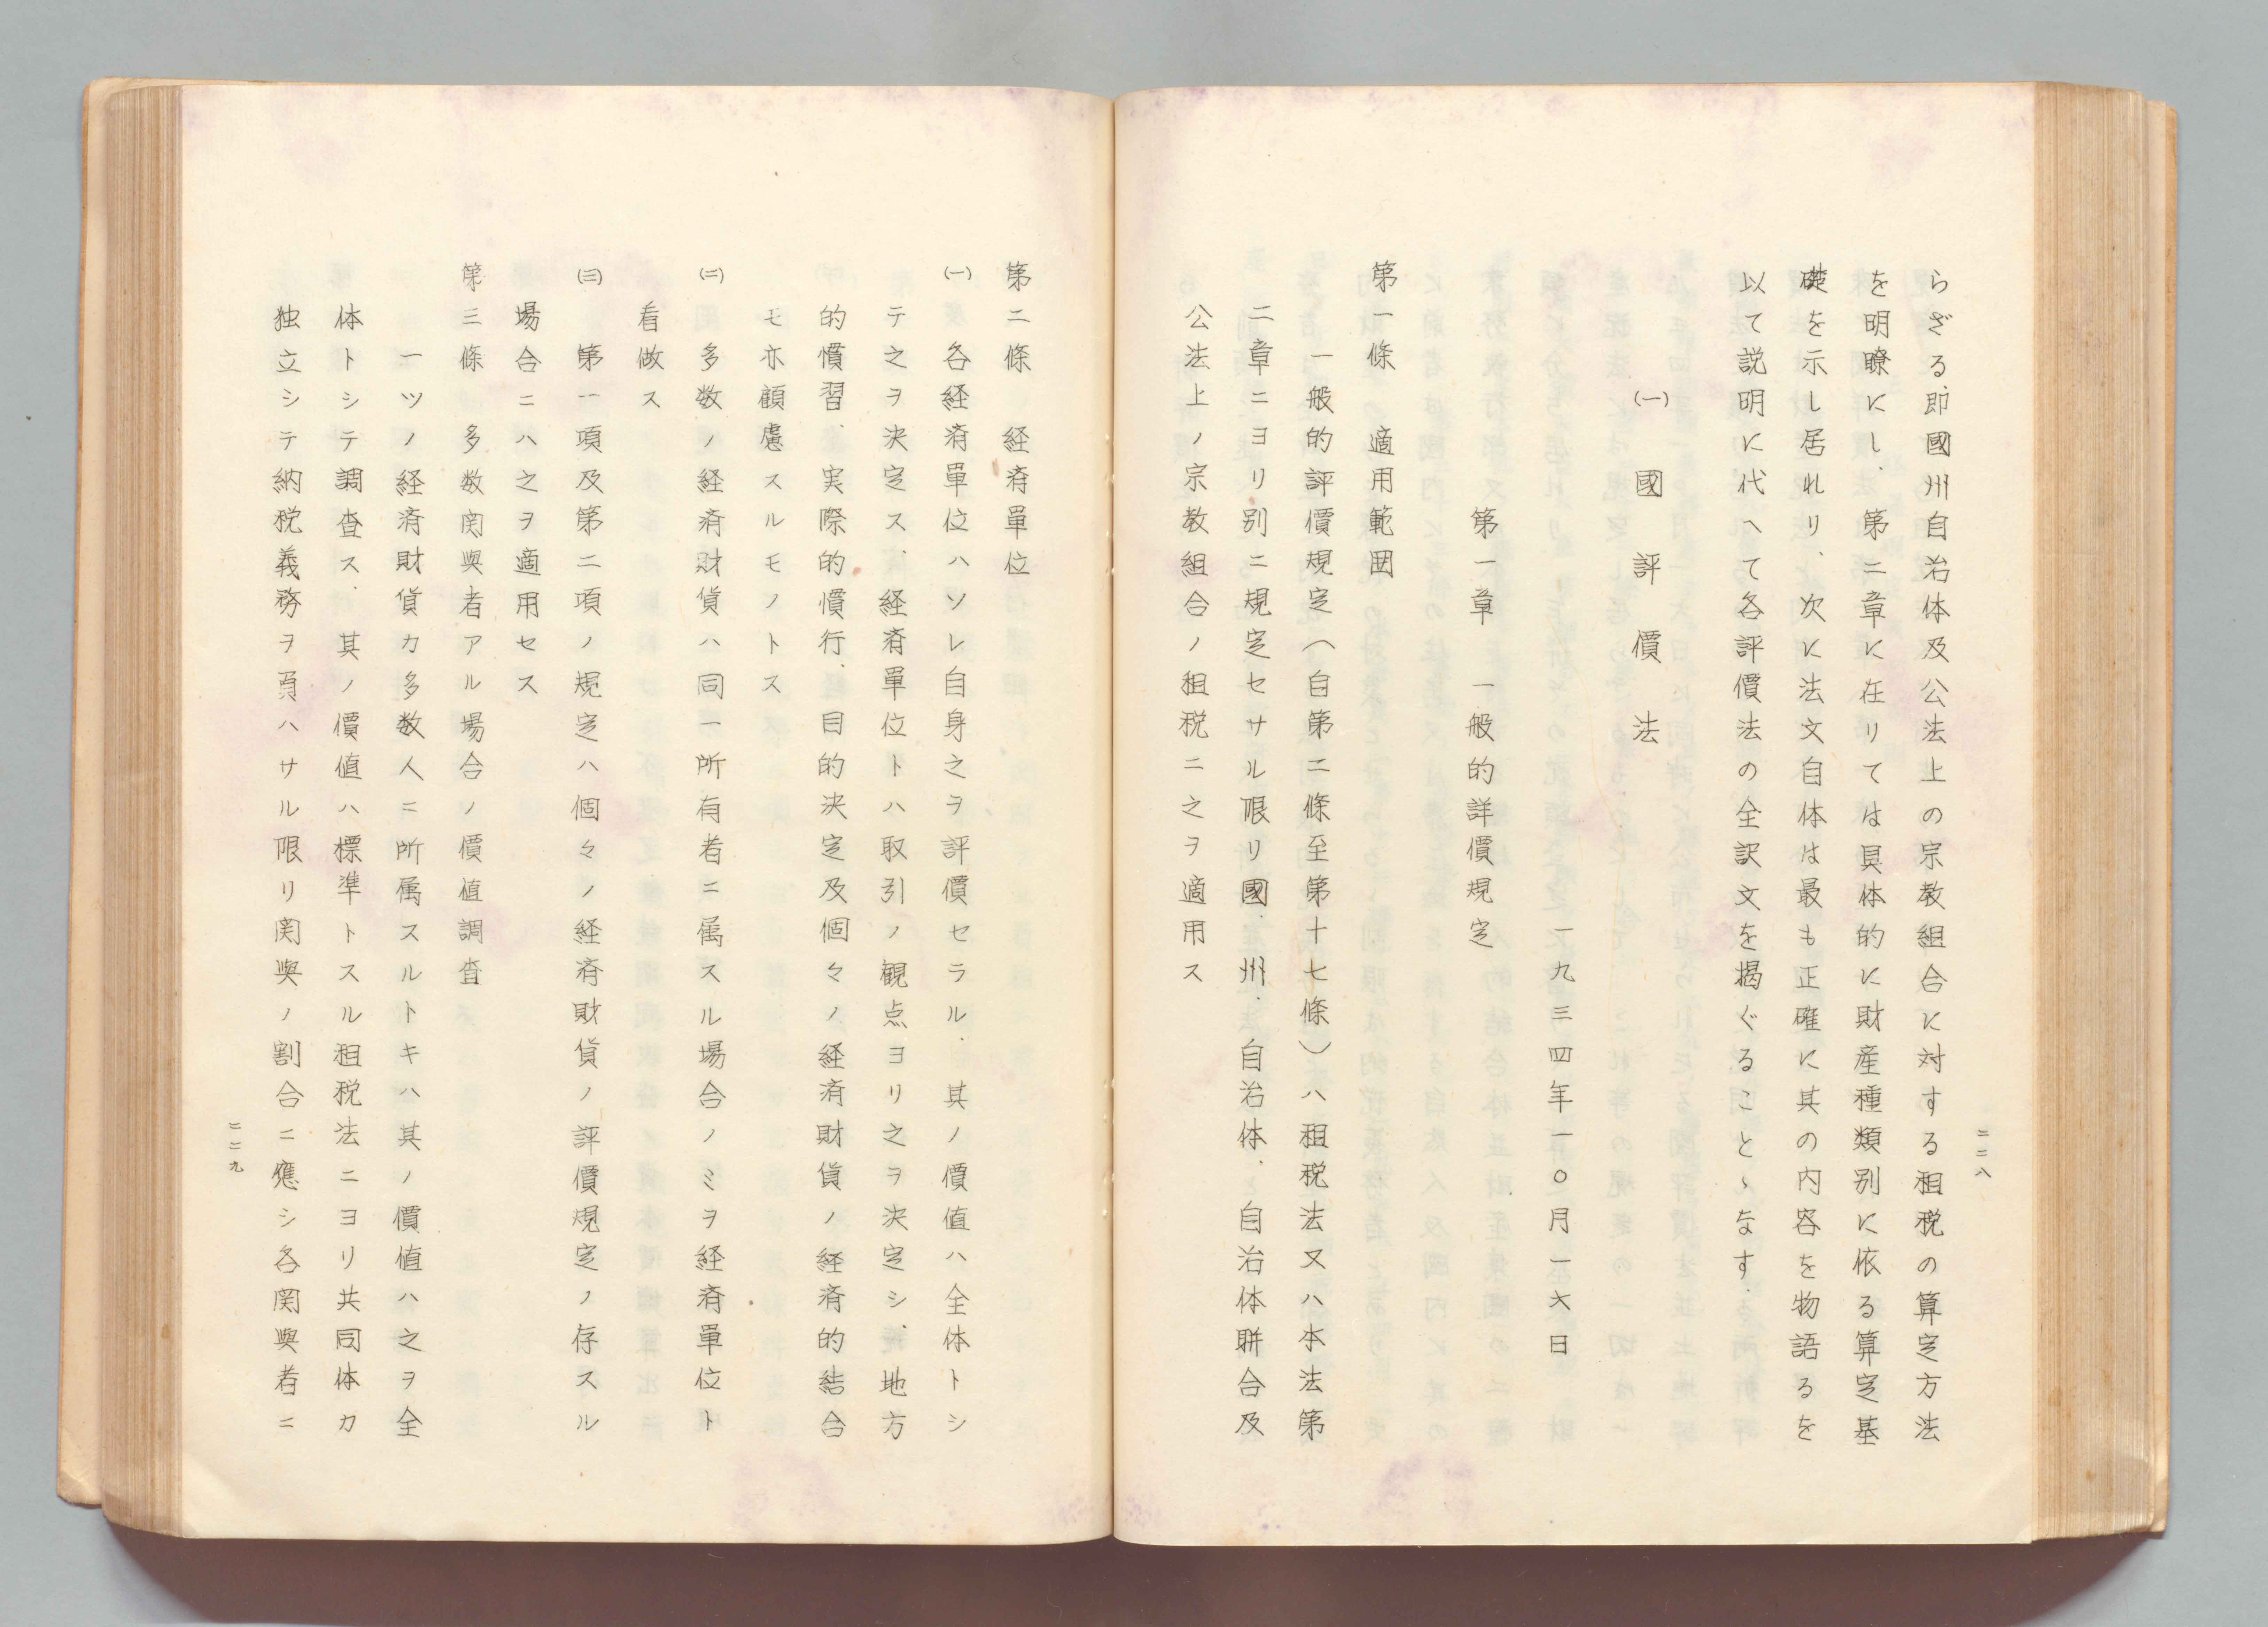 らざる、即國州自治体及公法上の宗教組合に対する租税の算定方法
を明瞭にし、第二章に在りては具体的に財産種類別に依る算定基
礎を示し居れり、次に法文自体は最も正確に其の内容を物語るを
以て説明に代へて各評價法の全訳文を掲ぐることゝなす.
(一) 國評價法
一九三四年一〇月一六日
第一章 一般的詳價規定
第一條 適用範囲
一般的評價規定(自第二條至第十七條)ハ租税法又ハ本法第
二章ニヨリ別ニ規定セサル限リ國、州、自治体、自治体聯合及
公法上ノ宗教組合ノ租税ニ之ヲ適用ス
二二八
第二條 経済單位
(一) 各経済單位ハソレ自身之ヲ評價セラル、其ノ價値ハ全体トシ
テ之ヲ決定ス、経済單位トハ取引ノ観点ヨリ之ヲ決定シ、地方
的慣習、実際的慣行、目的決定及個々ノ経済財貨ノ経済的結合
モ亦顧慮スルモノトス
(二) 多数ノ経済財貨ハ同一所有者ニ属スル場合ノミヲ経済單位ト
看做ス
(三) 第一項及第二項ノ規定ハ個々ノ経済財貨ノ評價規定ノ存スル
場合ニハ之ヲ適用セス
第三條 多数関與者アル場合ノ價値調査
一ツノ経済財貨カ多数人ニ所属スルトキハ其ノ價値ハ之ヲ全
体トシテ調査ス、其ノ價値ハ標準トスル租税法ニヨリ共同体カ
独立シテ納税義務ヲ負ハサル限リ関與ノ割合ニ應シ各関與者ニ
二二九